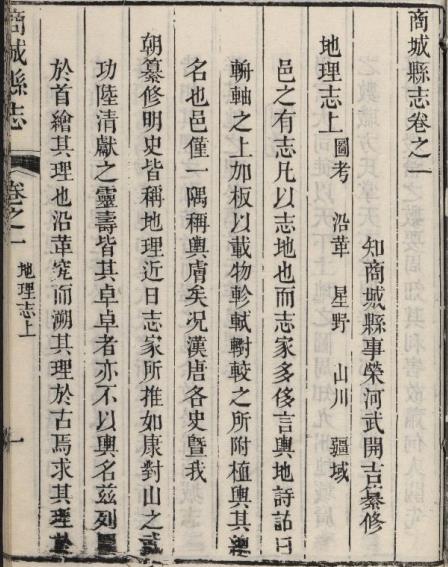 商城縣志卷之一
知商城縣事榮河武開吉纂修
地理志上 圖考 沿革 星野 山川 疆域
邑之有志凡以志地也而志家多侈言輿地詩詁曰
輈軸之上加板以載物軫軾轛較之所附植輿其總
名也邑僅一隅稱輿膚矣况漢唐各史曁我
朝纂修明史皆稱地理近日志家所推如康對山之武
功陸清獻之靈壽皆其卓卓者亦不以輿名兹列
於首繪其理也沿革究而溯其理於古焉求其理
商城縣志 卷之一 地理志上 一